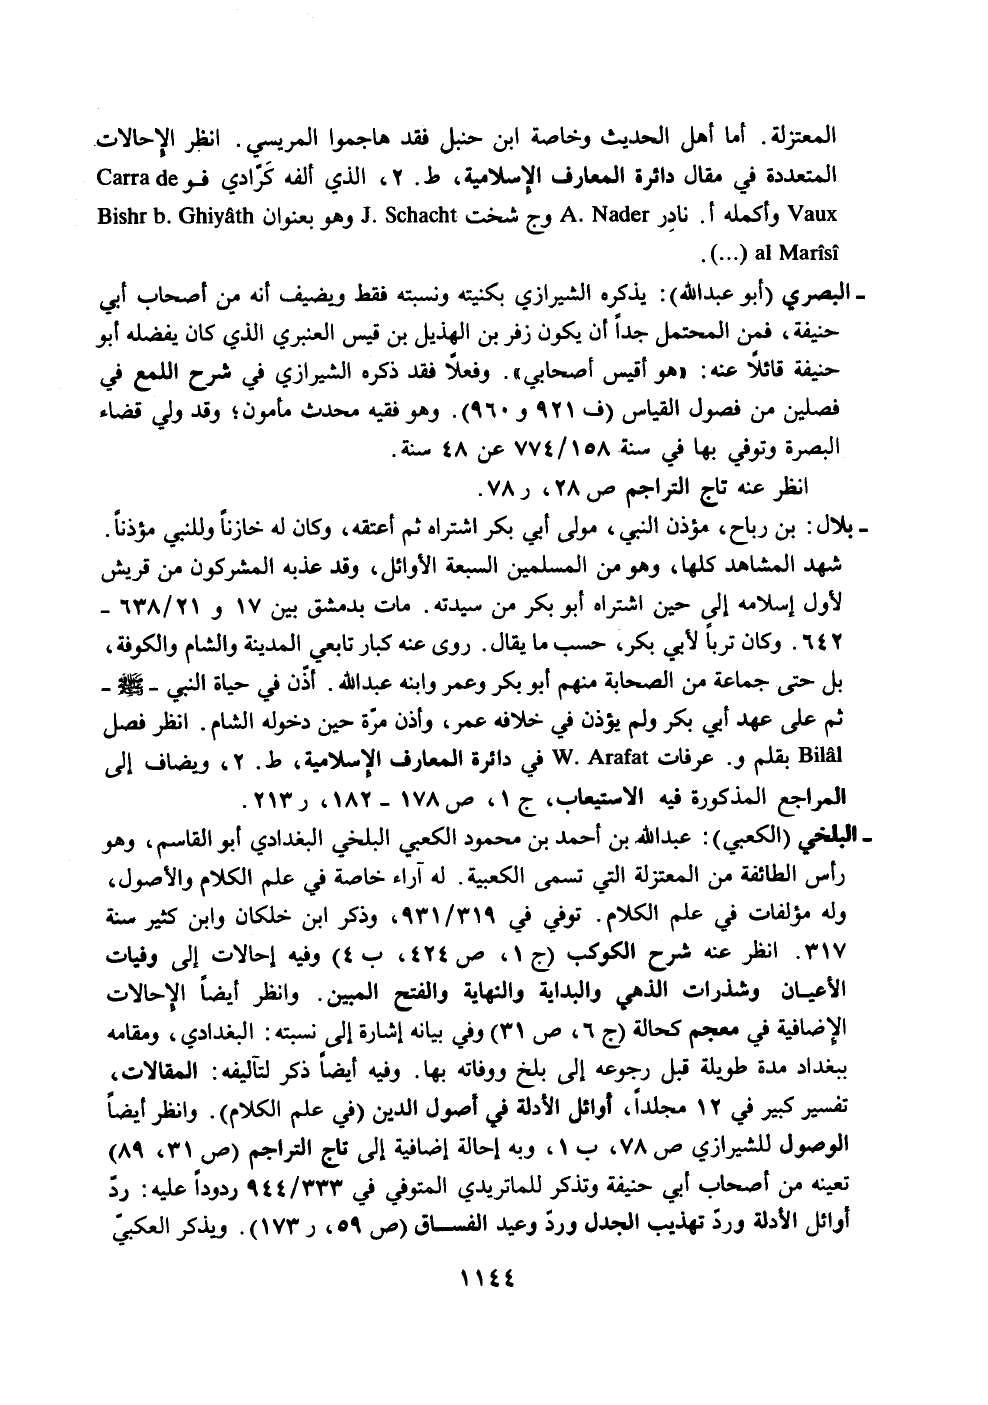 المعتزلة. أما أهل الحديث وخاصة ابن حنبل فقد هاجموا المريسي. انظر الإحالات
المتعددة في مقال دائرة المعارف الإسلامية، ط. ٢، الذي ألفه كَرّادي فـو Carra de
Vaux وأكمله أ. نادِر A. Nader وج شخت J. Schacht وهو بعنوان Bishr b. Ghiyâth
al Marîsî (...).
ـ البصري (أبو عبدالله): يذكره الشيرازي بكنيته ونسبته فقط ويضيف أنه من أصحاب أبي
حنيفة، فمن المحتمل جداً أن يكون زفر بن الهذيل بن قيس العنبري الذي كان يفضله أبو
حنيفة قائلاً عنه: «هو أقيس أصحابي». وفعلاً فقد ذكره الشيرازي في شرح اللمع في
فصلين من فصول القياس (ف ٩٢١ و ٩٦٠). وهو فقيه محدث مأمون؛ وقد ولي قضاء
البصرة وتوفي بها في سنة ٧٧٤/١٥٨ عن ٤٨ سنة.
انظر عنه تاج التراجم ص ٢٨، ر ٧٨.
ـ بلال: بن رباح، مؤذن النبي، مولى أبي بكر اشتراه ثم أعتقه، وكان له خازناً وللنبي مؤذناً.
شهد المشاهد كلها، وهو من المسلمين السبعة الأوائل، وقد عذبه المشركون من قريش
لأول إسلامه إلى حين اشتراه أبو بكر من سيدته. مات بدمشق بين ١٧ و ٦٣٨/٢١ ـ
٦٤٢. وكان ترباً لأبي بكر، حسب ما يقال. روى عنه كبار تابعي المدينة والشام والكوفة،
بل حتى جماعة من الصحابة منهم أبو بكر وعمر وابنه عبدالله. أذّن في حياة النبي ـ ﷺ ـ
ثم على عهد أبي بكر ولم يؤذن في خلافه عمر، وأذن مرّة حين دخوله الشام. انظر فصل
Bilâl بقلم و. عرفات W. Arafat في دائرة المعارف الإسلامية، ط. ٢، ويضاف إلى
المراجع المذكورة فيه الاستيعاب، ج ١، ص ١٧٨ ـ ١٨٢، ر ٢١٣.
ـ البلخي (الكعبي): عبدالله بن أحمد بن محمود الكعبي البلخي البغدادي أبو القاسم، وهو
رأس الطائفة من المعتزلة التي تسمى الكعبية. له آراء خاصة في علم الكلام والأصول،
وله مؤلفات في علم الكلام. توفي في ٩٣١/٣١٩، وذكر ابن خلكان وابن كثير سنة
٣١٧. انظر عنه شرح الكوكب (ج ١، ص ٤٢٤، ب ٤) وفيه إحالات إلى وفيات
الأعيـان وشذرات الذهي والبداية والنهاية والفتح المبين. وانظر أيضاً الإحالات
الإضافية في معجم كحالة (ج ٦، ص ٣١) وفي بيانه إشارة إلى نسبته: البغدادي، ومقامه
ببغداد مدة طويلة قبل رجوعه إلى بلخ ووفاته بها. وفيه أيضاً ذكر لتآليفه: المقالات،
تفسير كبير في ١٢ مجلداً، أوائل الأدلة في أصول الدين (في علم الكلام). وانظر أيضاً
الوصول للشيرازي ص ٧٨، ب ١، وبه إحالة إضافية إلى تاج التراجم (ص ٣١، ٨٩)
تعينه من أصحاب أبي حنيفة وتذكر للماتريدي المتوفي في ٩٤٤/٣٣٣ ردوداً عليه: ردّ
أوائل الأدلة وردّ تهذيب الجدل وردّ وعيد الفساق (ص ٥٩، ر ١٧٣). ويذكر العكبيّ
١١٤٤